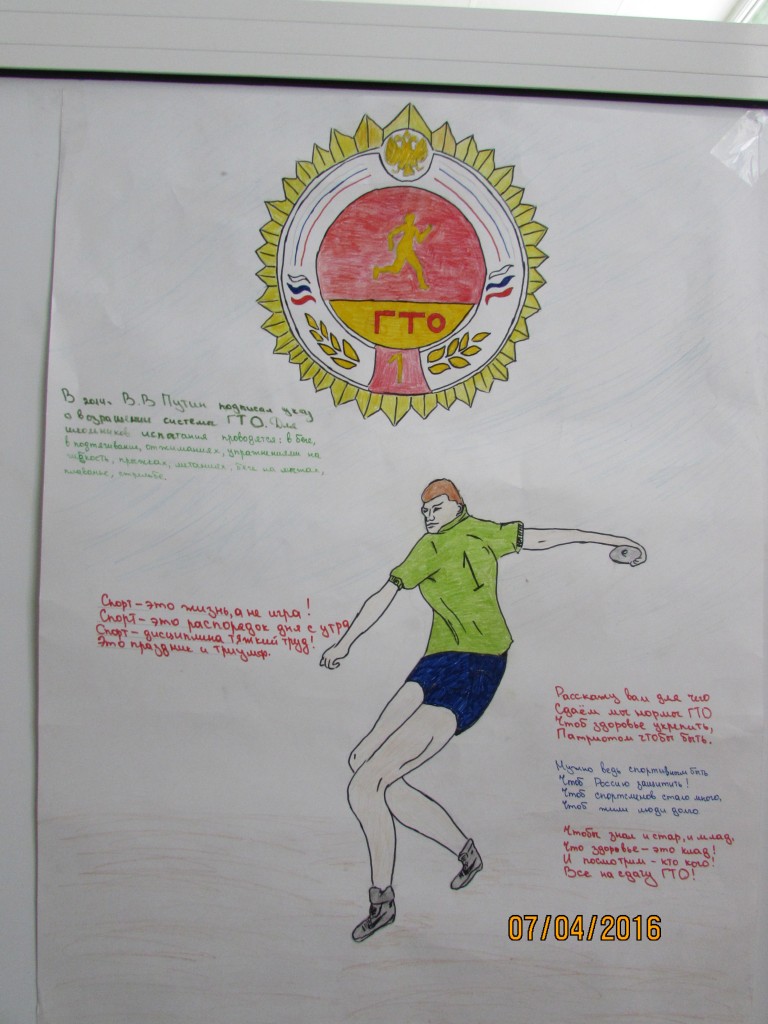 ГТО
1
В 2014г В.В Путин подписал указ
о возращении системы ГТО. Для
школьников испытания проводятся: в беге,
в подтягивании, отжиманиях, упражнениям на
гибкость, прыжках, метаниях, беге на лыжах,
плаванье, стрельбе.
1
Спорт-это жизнь, а не игра!
Спорт-это распорядок дня с утра
Спорт-дисциплина тяжкий труд!
Это праздник и триумф.
Расскажу вам для чего
Сдаём мы нормы ГТО
Чтоб здоровье укрепить,
Патриотом чтобы быть.
Нужно ведь спортивным быть
Чтоб Россию защитить!
Чтоб спортсменов стало много,
Чтоб жили люди долго
Чтобы знал и стар, и млад,
Что здоровье-это клад!
И посмотрим-кто кого!
Все на сдачу ГТО!
07/04/2016